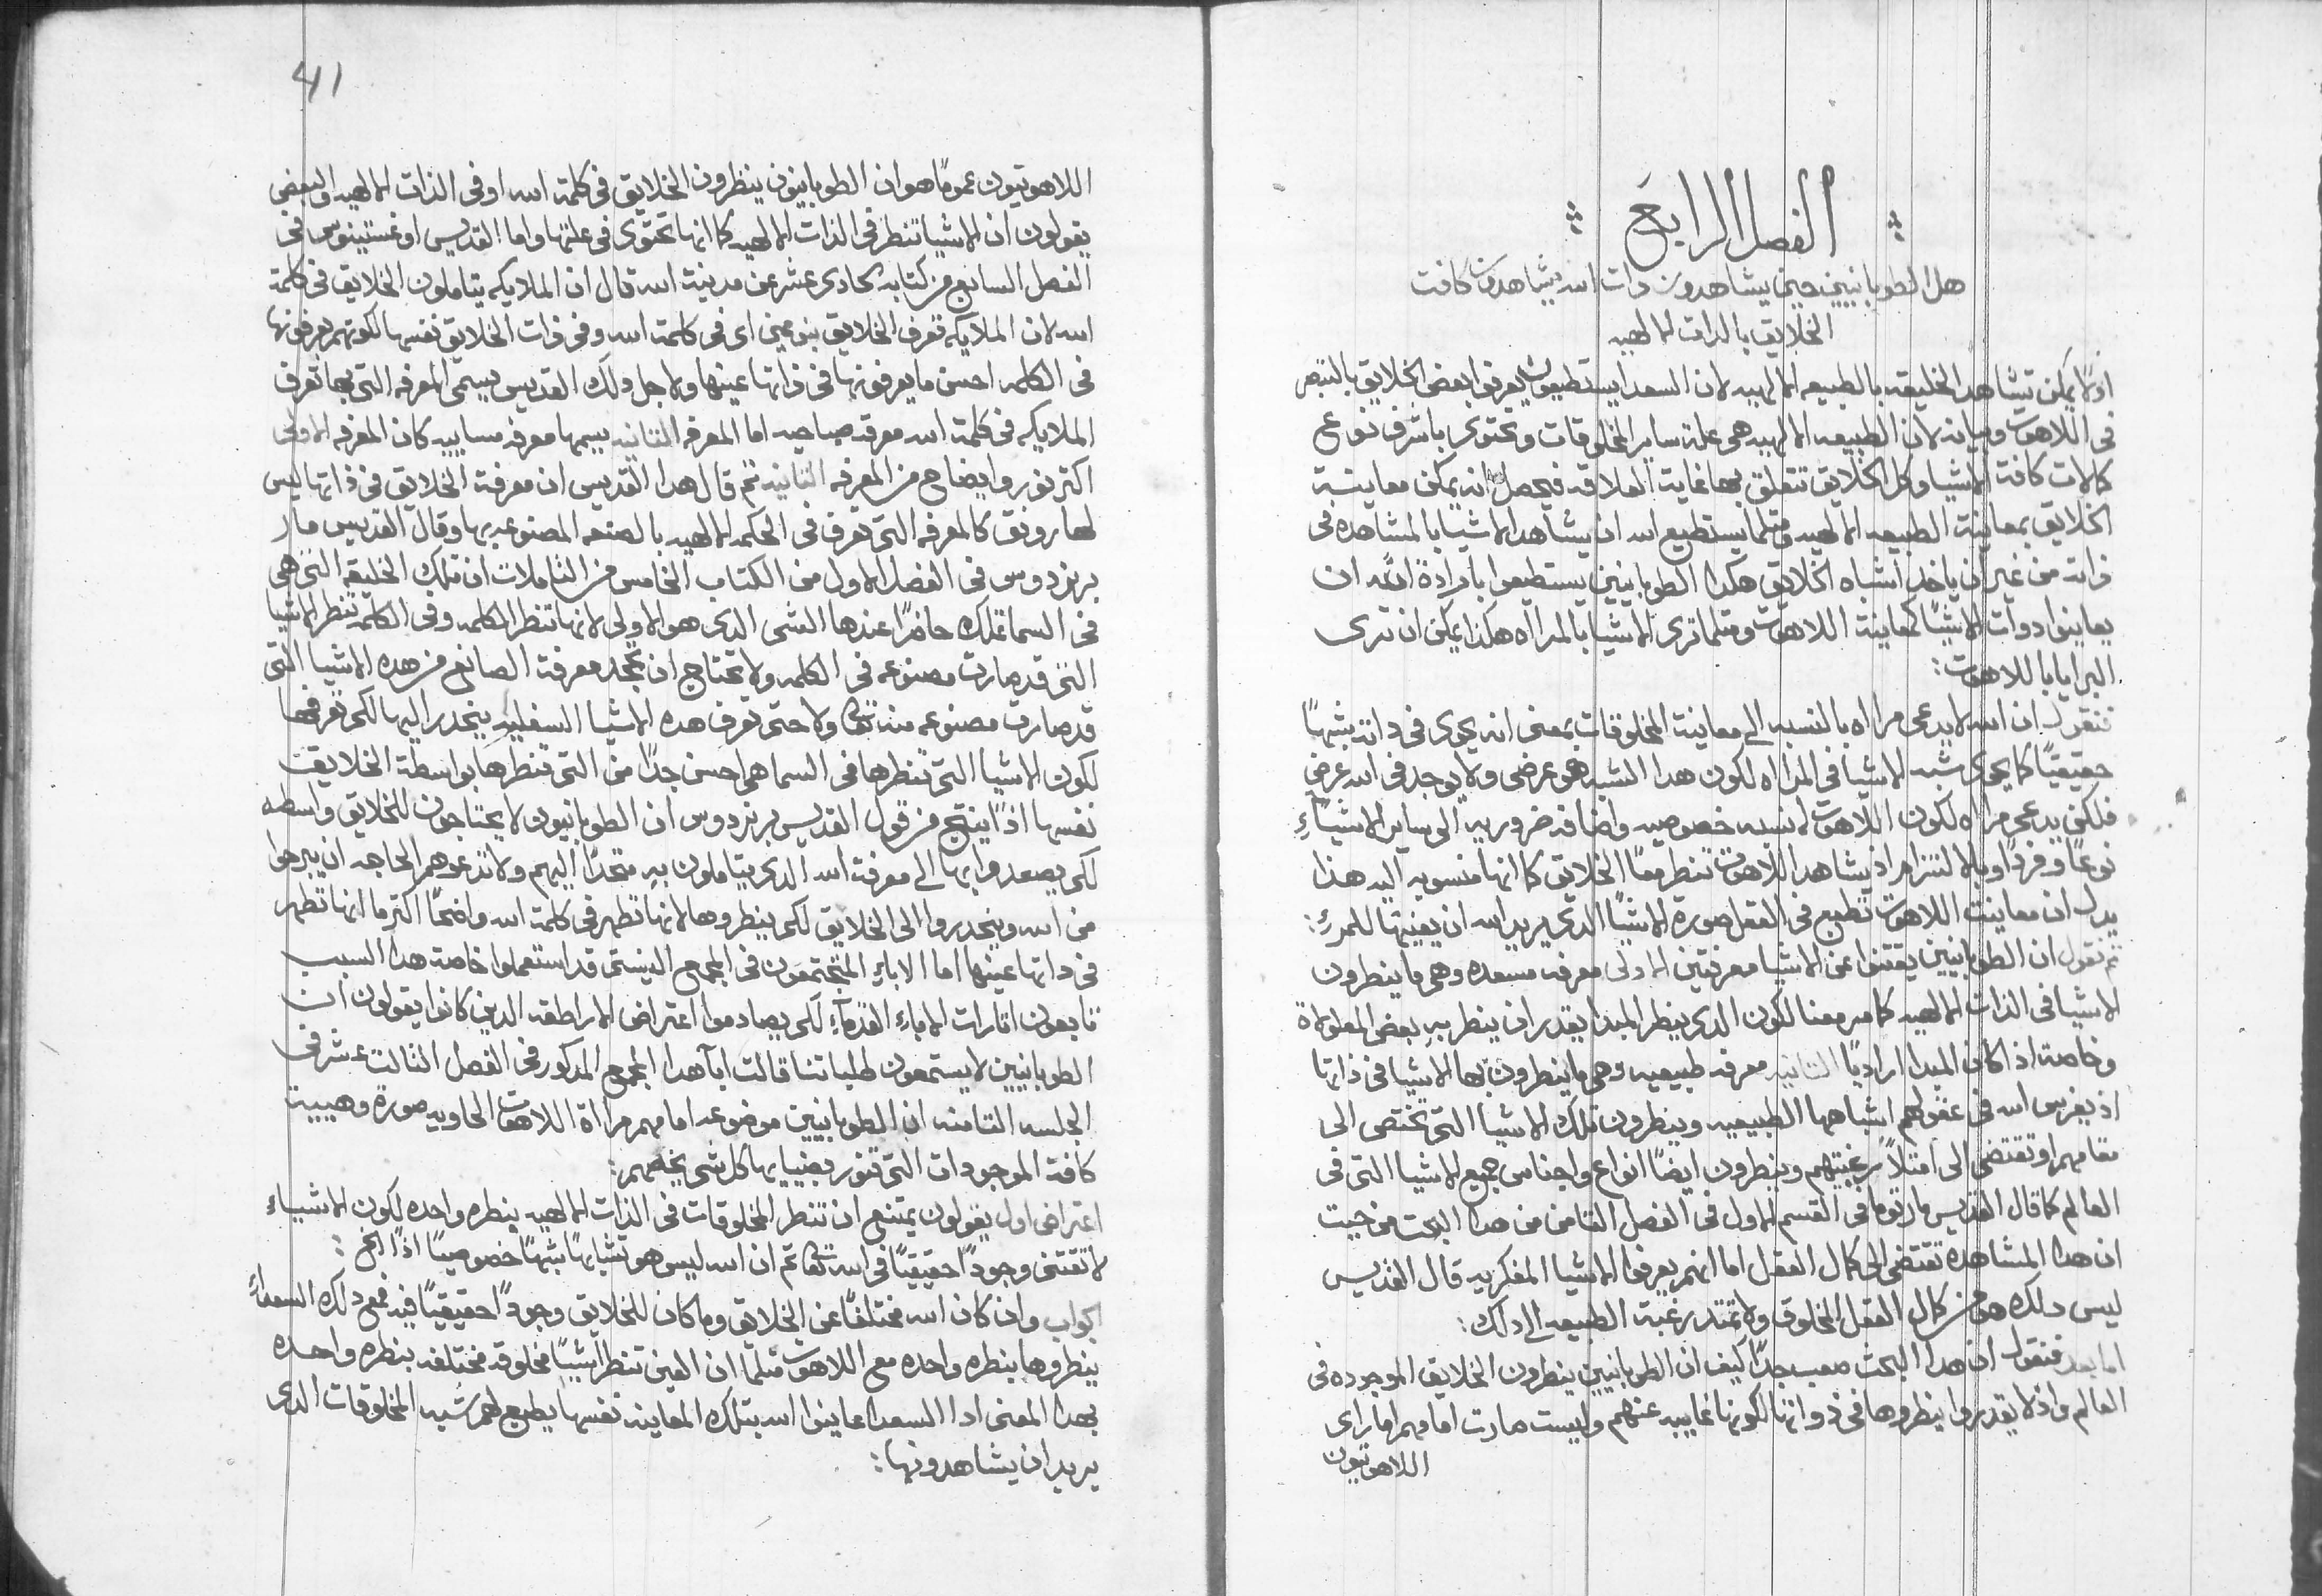 الفصل الرابع
هل الطوبانيين حين يشاهدون دات الله يشاهدون كافت
الخلايق بالدات الالهيه
اولا يمكن تشاهد الخليقه بالطبيعه الالهيه لان السعدا يستطيعون يعرفوا بعض الخلايق بالتبصر
فى اللاهوت وبيانه لان الطبيعه الالهيه هى علة ساير المخلوقات وتحتوى باشرف نوع
كمالات كافة الاشيا وكل الخلايق تتعلق بها غاية العلاقه فيحصل انه يمكن معاينة
الخلايق بمعاينة الطبيعه الالهيه ومثلما يستطيع الله ان يشاهد الاشيا بالمشاهده فى
ذاته من غير ان ياخد اشباه الخلايق هكدا الطوبانيين يستطيعوا بارادة الله ان
يعاينوا دوات الاشيا كمعاينة اللاهوت ومثلما ترى الاشيا بالمراه هكذا يمكن ان ترى
البرايا باللاهوت:
فنقول ان الله لا يدعى مراه بالنسبه الى معاينة المخلوقات بمعنى انه يحوى فى داته شبهًا
حقيقيًا كما يحوى شبه الاشيا فى المراه لكون هدا الشبه هو عرضى ولا يوجد فى الله عرض
فلكن يدعى مراه لكون اللاهوت له نسبه خصوصيه واضافه ضروريه الى ساير الاشياءِ
نوعًا وفردًا وبالالتزام اذ يشاهد اللاهوت تنظر معًا الخلايق كانها منسوبه اليه هذا
يدل ان معاينت اللاهوت تطبع فى العقل صورة الاشيا الذى يريد الله ان يعينها للمرءِ:
ثم نقول ان الطوبانيين يقتنوا عن الاشيا معرفتين الاولى معرفه مسعده وهى ما ينظرون
الاشيا فى الذات الالهيه كما مر معنا لكون الدى ينظر المبدا يقدر ان ينظر بهِ بعض المعلولاة
وخاصة اذا كان المبدا اراديًا التانيه معرفه طبيعيه وهى ما ينظرون بها الاشيا فى ذاتها
اذ يغرس الله فى عقولهم اشباهها الطبيعيه وينظرون تلك الاشيا التى تختص الى
مقامهم او تقتضى الى امتلا رغبتهم وينظرون ايضًا انواع واجناس جميع الاشيا التى فى
العالم كما قال القديس مار توما فى القسم الاول فى الفصل التامن من هدا البحت من حيت
ان هدا المشاهده تقتضى الى كمال العقل اما انهم يعرفوا الاشيا المفكريه قال القديس
ليس دلك هو من كمال العقل المخلوق ولا تمتد رغبة الطبيعه الى دلك:
اما بعد فنقول ان هدا البحث صعب جدًا كيف ان الطوبانيين ينظرون الخلايق الموجوده فى
العالم واذ لا يقدروا ينظروها فى ذواتها لكونها غايبه عنهم وليست صارت امامهم اما راى
اللاهوتيون
41
اللاهوتيون عمومًا هو ان الطوبانيون ينظرون الخلايق فى كلمة الله او فى الذات الالهيه والبعض
يقولون ان الاشيا تنظر فى الذات الالهيه كما انها تحتوى فى علتها واما القديس اوغستينوس فى
الفصل السابع من كتابه الحادى عشر عن مدينة الله قال ان الملايكه يتاملون الخلايق فى كلمة
الله لان الملايكه تعرف الخلايق بنوعين اى فى كلمة الله وفى ذات الخلايق نفسها لكونهم يعرفونها
فى الكلمه احسن ما يعرفونها فى ذاتها عينها ولاجل دلك القديس يسمى المعرفه التى بها تعرف
الملايكه فى كلمة الله معرفه صباحيه اما المعرفه التانيه يسميها معرفه مساييه كان المعرفه الاولى
اكتر نور وايضاح من المعرفه التانيه ثم قال هدا القديس ان معرفة الخلايق فى ذاتها ليس
لها رونق كالمعرفه التى تعرف فى الحكمه الالهيه بالصنعه المصنوعه بها وقال القديس مار
برنردوس فى الفصل الاول من الكتاب الخامس من التاملات ان تلك الخليقه التى هى
فى السما تملك حاضرًا عندها الشى الدى هو الاولى لانها تنظر الكلمه وفى الكلمه تنظر الاشيا
التى قد صارت مصنوعه فى الكلمه ولا تحتاج ان تجد معرفة الصانع من هده الاشيا التى
قد صارت مصنوعه منه ولا حتى تعرف هده الاشيا السفليه ينحدر اليها لكى تعرفها
لكون الاشيا التى تنظرها فى السما هى احسن جدًا من التى تنظرها بواسطة الخلايق
نفسها اذًا ينتج من قول القديس برنردوس ان الطوبانيون لا يحتاجون للخلايق واسطه
لكى يصعدوا بها الى معرفة الله الدى يتاملون بهِ متحدًا اليهم ولا تدعوهم الحاجه ان يبرحوا
من الله وينحدروا الى الخلايق لكى ينظروها لانها تظهر فى كلمة الله واضحًا اكتر ما انها تظهر
فى داتها عينها اما الاباءِ المجتمعون فى المجمع السينسى قد استعملوا خاصة هدا السبب
تابعون اتارات الاباءِ القدماءِ لكى يصادموا اعتراض الاراطقه الدين كانوا يقولون ان
الطوبانيين لا يستمعون طلباتنا قالت ابآ هدا المجمع المدكور فى الفصل التالت عشر فى
الجلسه التامنه ان الطوبانيين موضوعه امامهم مراة اللاهوت الحاويه صورة وهيية
كافة الموجودات التى تنور بضيايها كل شى يخصهم:
اعتراض اول يقولون يمتنع ان تنظر المخلوقات فى الذات الالهيه بنظره واحده لكون الاشياءِ
لا تقتنى وجودًا حقيقيًا فى الله تعا تم ان الله ليس هو تشابهًا شبهًا خصوصيًا اذًا الخ:
جواب وان كان الله مختلفًا عن الخلايق وما كان للخلايق وجودًا حقيقيًا فيه فمع دلك السعداءُ
ينظروها بنظره واحده مع اللاهوت متلما ان العين تنظر اشيًا مخلوقه مختلفه بنظره واحده
بهدا المعنى ادا السعدا عاينوا الله بتلك المعاينه نفسها يطبع لهم شبه المخلوقات الدى
يريد ان يشاهدونها: